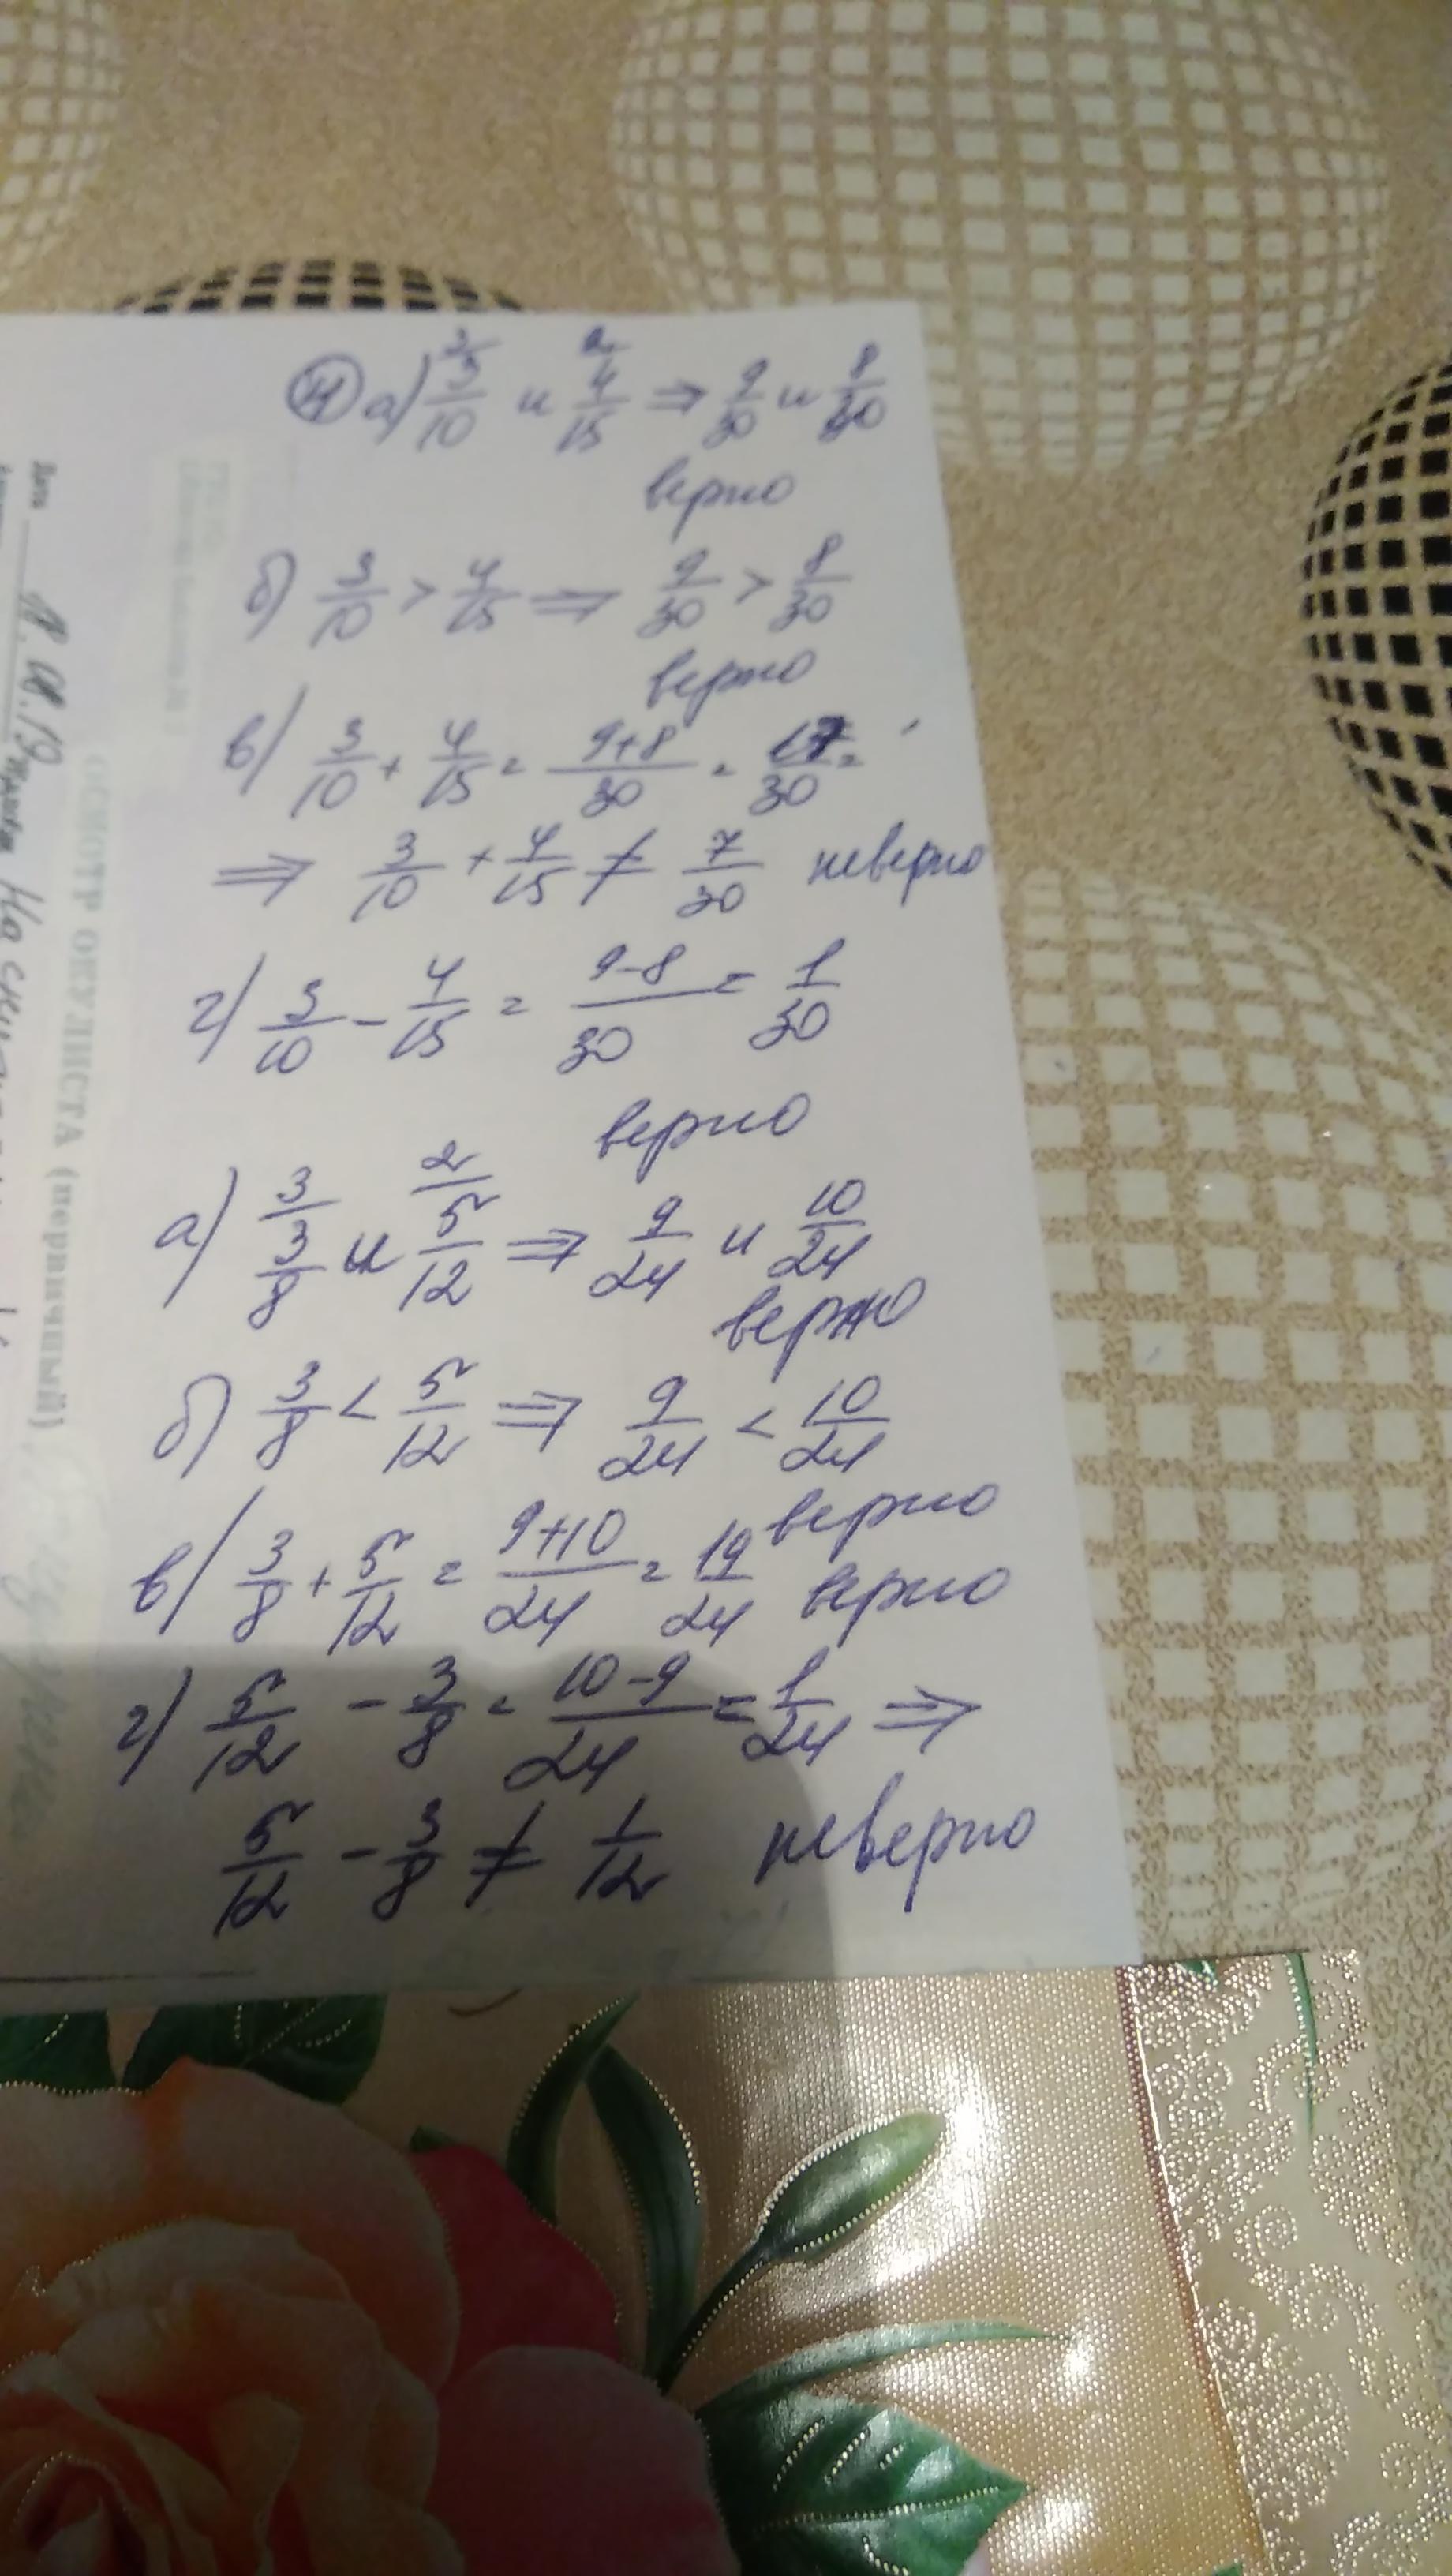 ④ а) 3/10 и 4/15 ⇒ 9/30 и 8/30
верно
б) 3/10 > 4/15 ⇒ 9/30 > 8/30
верно
в) 3/10 + 4/15 = (9+8)/30 = 17/30 =
⇒ 3/10 + 4/15 ≠ 7/30 неверно
г) 3/10 - 4/15 = (9-8)/30 = 1/30
верно
а) 3/8 и 5/12 ⇒ 9/24 и 10/24
верно
б) 3/8 < 5/12 ⇒ 9/24 < 10/24
верно
в) 3/8 + 5/12 = (9+10)/24 = 19/24 верно
г) 5/12 - 3/8 = (10-9)/24 = 1/24 ⇒
5/12 - 3/8 ≠ 1/12 неверно
Дата
ОСМОТР ОКУЛИСТА (первичный)